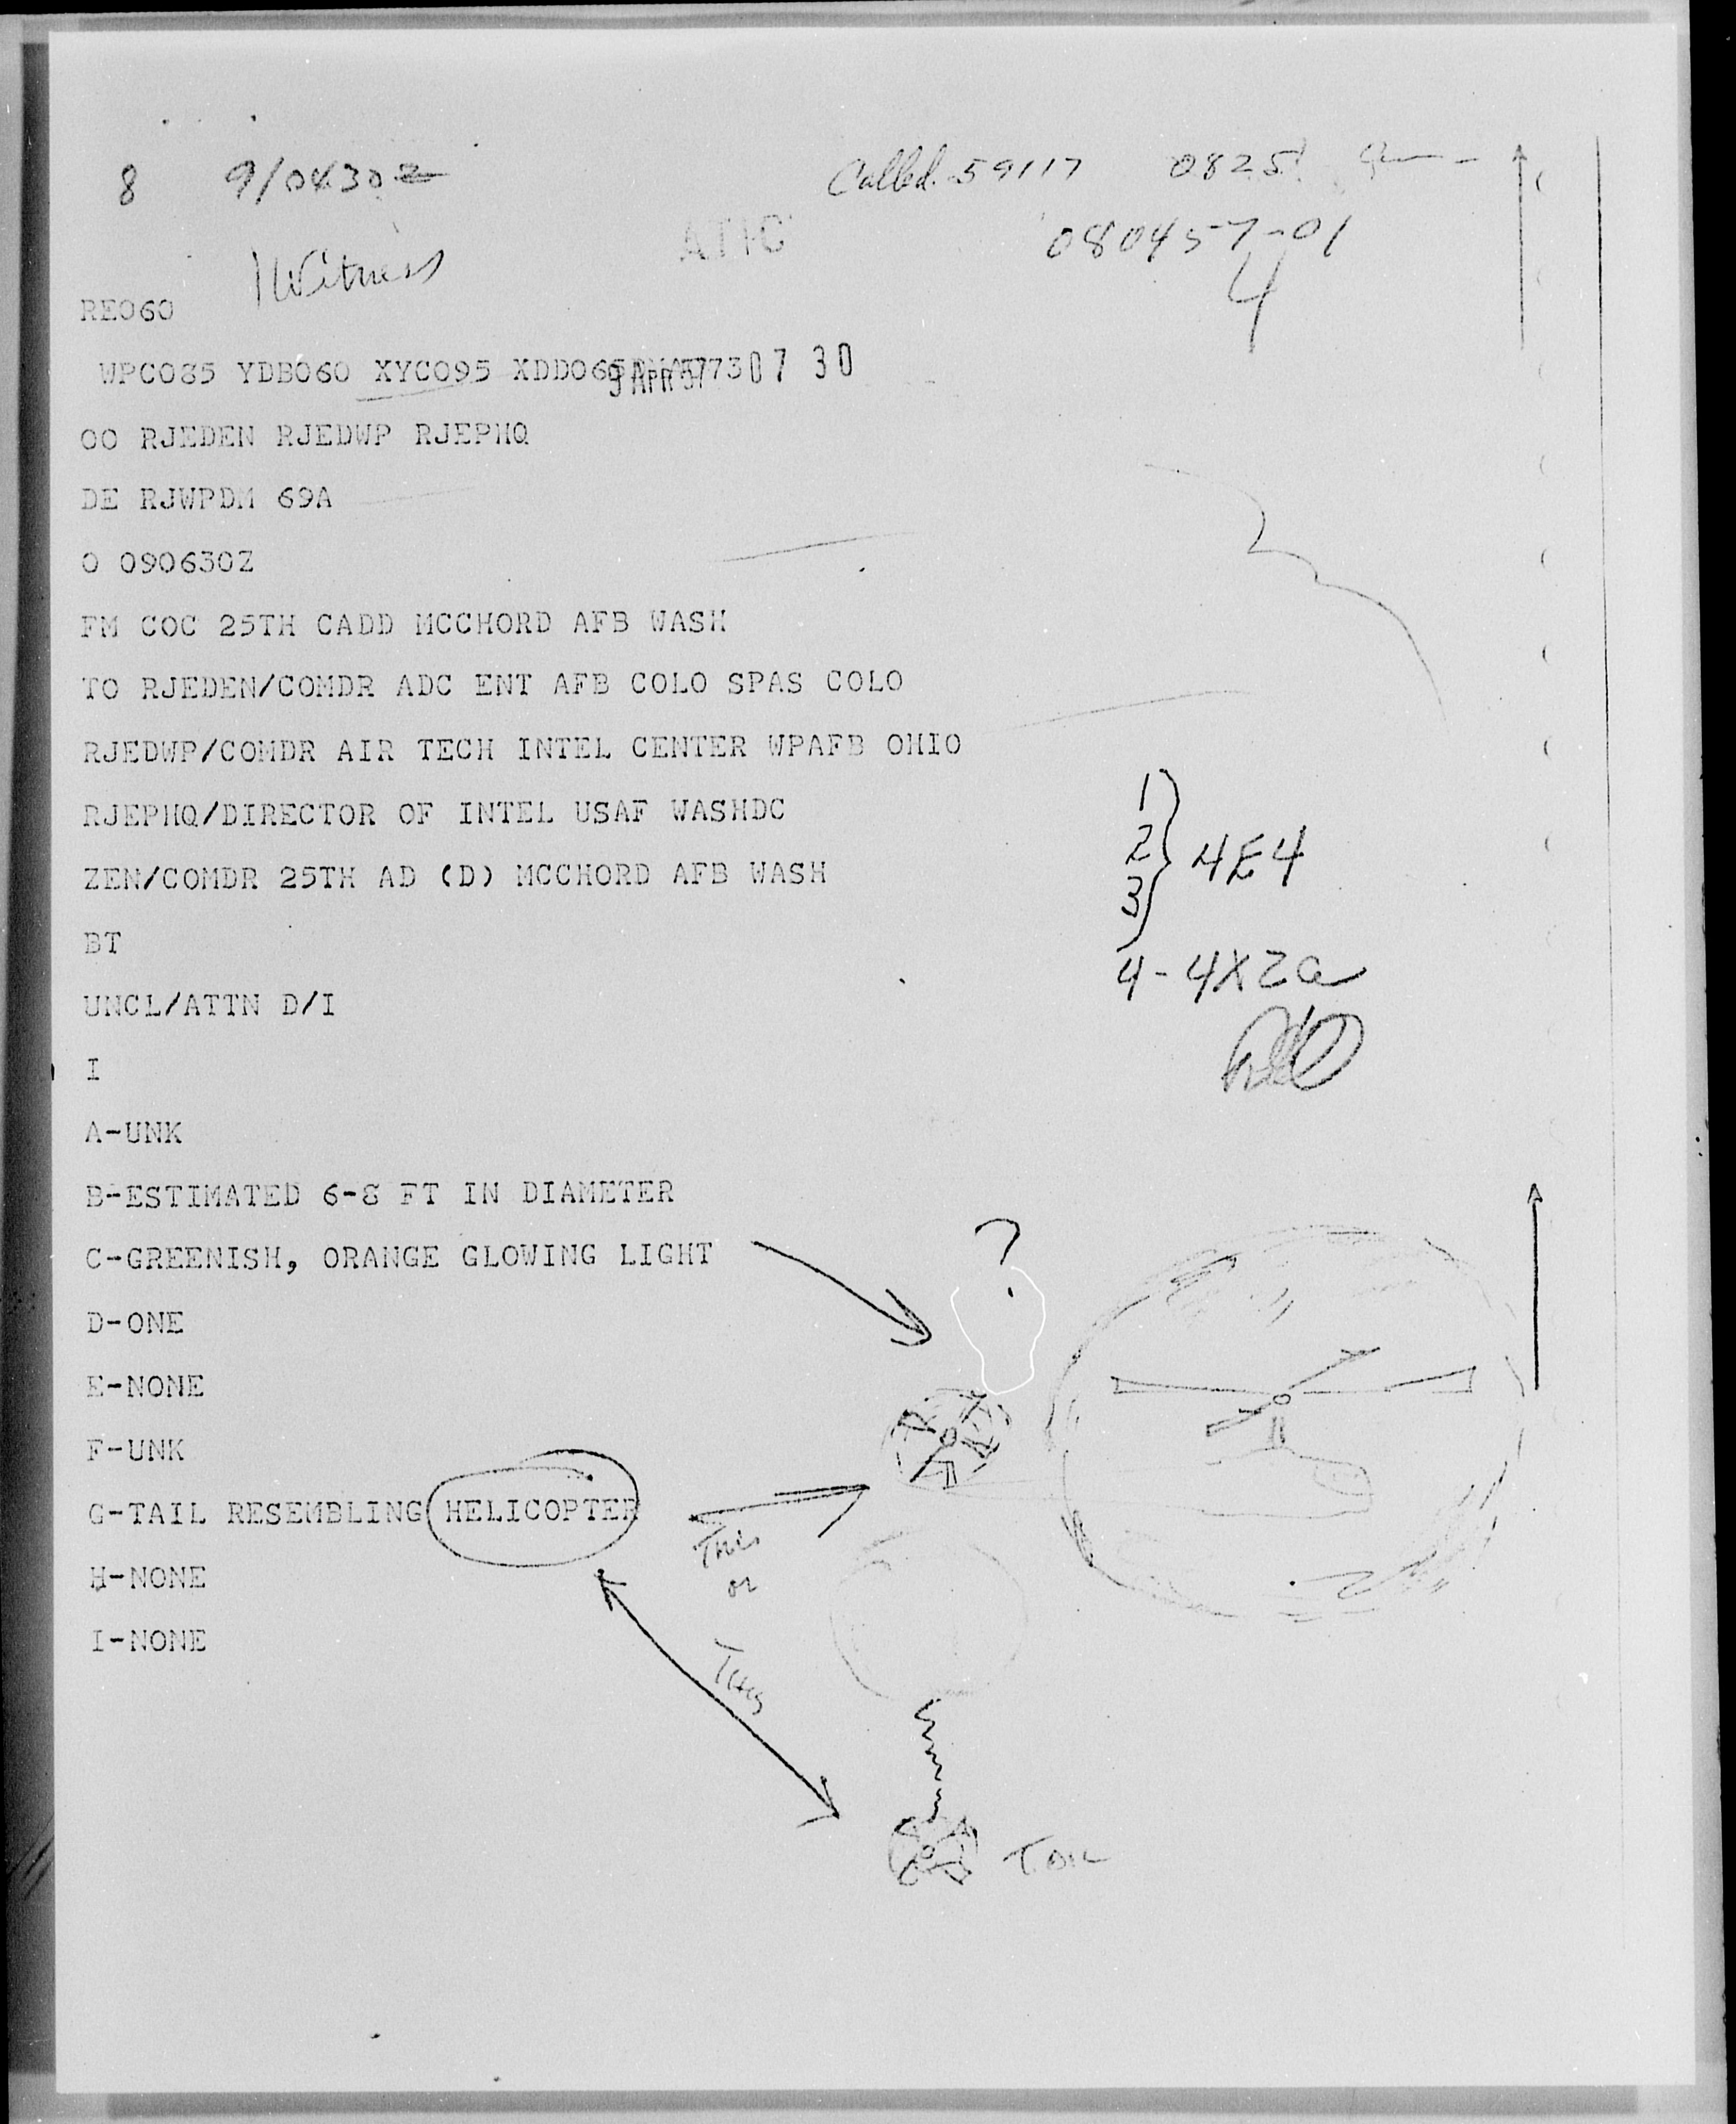 8 9/0430Z Called 59117 0825
ATIC 080457-01
1 Witness 4
RE060
WPC085 YDB060 XYC095 XDD065
9 APR 57 07 30
OO RJEDEN RJEDWP RJEPHQ
DE RJWPDM 69A
O 090630Z
FM COC 25TH CADD MCCHORD AFB WASH
TO RJEDEN/COMDR ADC ENT AFB COLO SPAS COLO
RJEDWP/COMDR AIR TECH INTEL CENTER WPAFB OHIO
RJEPHQ/DIRECTOR OF INTEL USAF WASHDC
ZEN/COMDR 25TH AD (D) MCCHORD AFB WASH
1
2 4E4
3
4-4X2a
BT
UNCL/ATTN D/I
I
A-UNK
B-ESTIMATED 6-8 FT IN DIAMETER
C-GREENISH, ORANGE GLOWING LIGHT
?
D-ONE
E-NONE
F-UNK
G-TAIL RESEMBLING HELICOPTER
This
or
This
H-NONE
I-NONE
Tail